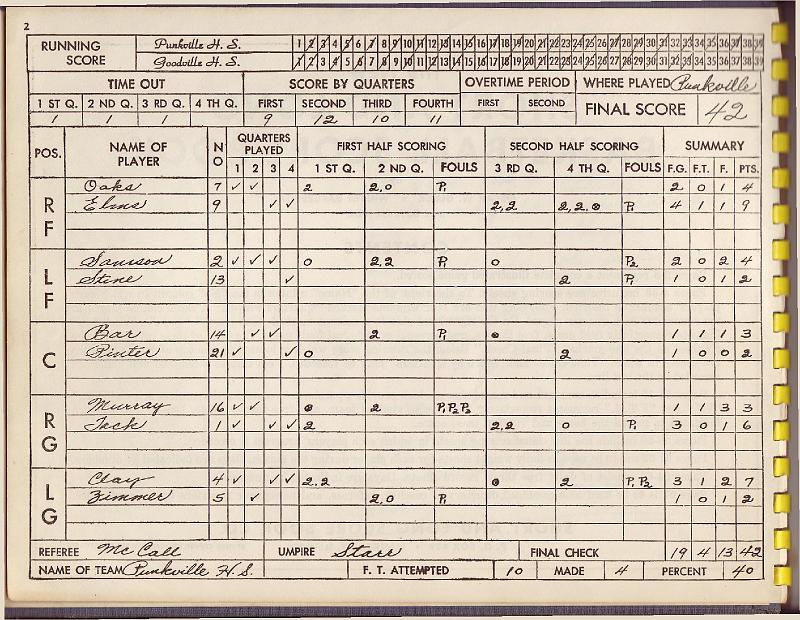 2
RUNNING SCORE Punkville H. S. 1 2 3 4 5 6 7 8 9 10 11 12 13 14 15 16 17 18 19 20 21 22 23 24 25 26 27 28 29 30 31 32 33 34 35 36 37 38 39
Goodville H. S. 1 2 3 4 5 6 7 8 9 10 11 12 13 14 15 16 17 18 19 20 21 22 23 24 25 26 27 28 29 30 31 32 33 34 35 36 37 38 39
TIME OUT SCORE BY QUARTERS OVERTIME PERIOD WHERE PLAYED Punkville
1 ST Q. 2 ND Q. 3 RD Q. 4 TH Q. FIRST SECOND THIRD FOURTH FIRST SECOND FINAL SCORE 42
1 1 1 9 12 10 11
POS. NAME OF PLAYER NO QUARTERS PLAYED FIRST HALF SCORING SECOND HALF SCORING SUMMARY
1 2 3 4 1 ST Q. 2 ND Q. FOULS 3 RD Q. 4 TH Q. FOULS F.G. F.T. F. PTS.
RF Oaks 7 ✓ ✓ 2 2,0 P1 2 0 1 4
Elms 9 ✓ ✓ 2,2 2,2,⊙ P1 4 1 1 9
LF Samson 2 ✓ ✓ ✓ 0 2,2 0 P2 2 0 2 4
Stine 13 ✓ 2 P1 1 0 1 2
C Bar 14 ✓ ✓ 2 P1 ⊙ 1 1 1 3
Pinter 21 ✓ ✓ 0 2 1 0 0 2
RG Murray 16 ✓ ✓ ⊙ 2 P1 P2 P3 1 1 3 3
Jack 1 ✓ ✓ ✓ 2 2,2 0 P1 3 0 1 6
LG Clay 4 ✓ ✓ ✓ 2,2 ⊙ 2 P1 P2 3 1 2 7
Zimmer 5 ✓ 2,0 P1 1 0 1 2
REFEREE McCall UMPIRE Starr FINAL CHECK 19 4 13 42
NAME OF TEAM Punkville H. S. F. T. ATTEMPTED 10 MADE 4 PERCENT 40